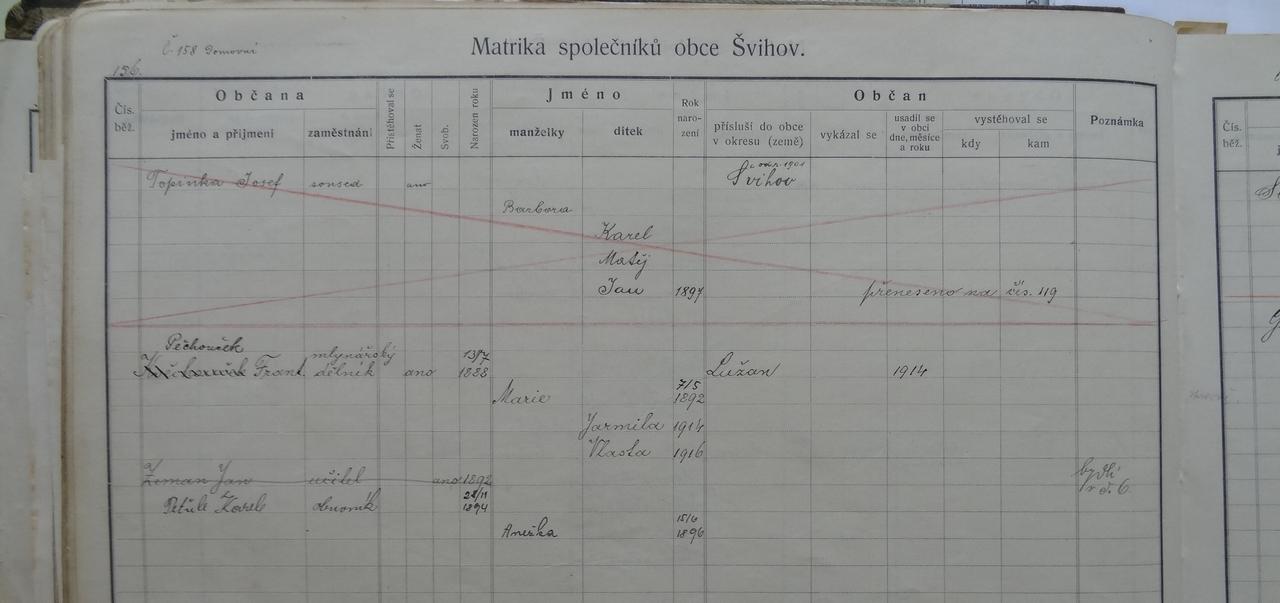 č. 158 Domovní
Matrika společníků obce Švihov.
156.
Čís. běž.
Občana
jméno a přijmení
zaměstnání
Přistěhoval se
Ženat
Svob.
Narozen roku
Jméno
manželky
dítek
Rok naro- zení
Občan
přísluší do obce v okresu (země)
vykázal se
usadil se v obci dne, měsíce a roku
vystěhoval se
kdy
kam
Poznámka
Čís. běž.
Topinka Josef soused ano Švihov 1901
Barbora
Karel
Matěj
Jan 1897 přeneseno na čís. 49
Pěchouček mlynářský 13/7
Frant. dělník ano 1888 Lužan 1914
7/5
Marie 1892
Jarmila 1914
Vlasta 1916
Zeman Jan učitel ano 1892 bydlí v č. 6
28/11
Petule Karel obuvník 1894
15/6
Anežka 1896